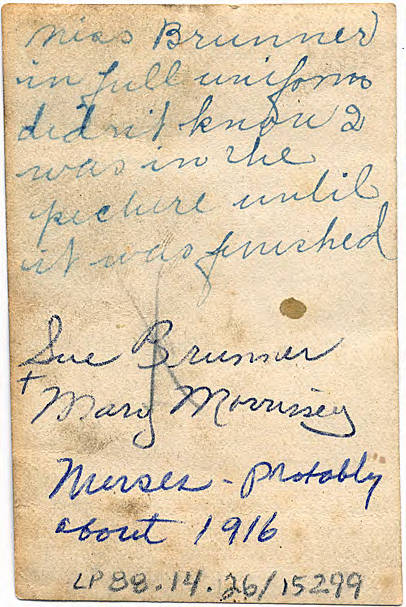 Miss Brunner
in full uniform
didn't know I
was in the
picture until
it was finished
Sue Brunner
+
Mary Morrissey
Nurses - probably
about 1916
LP88.14.26/15299